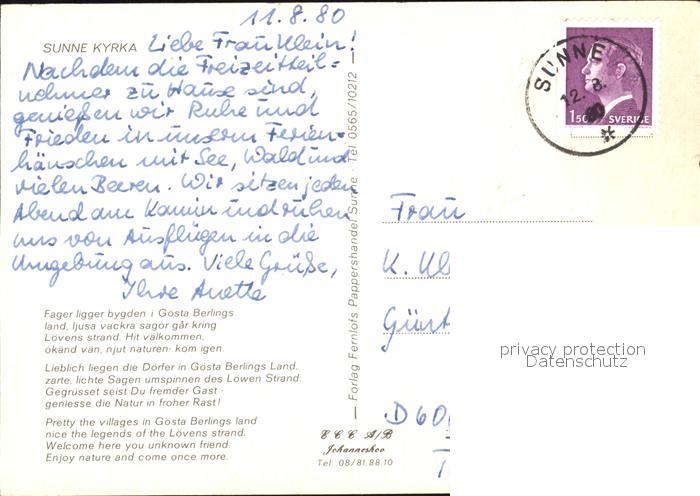 11.8.80
SUNNE KYRKA Liebe Frau Klein!
Nachdem die Freizeitteil=
nehmer zu Hause sind,
genießen wir Ruhe und
Frieden in unserm Ferien-
häuschen mit See, Wald und
vielen Beeren. Wir sitzen jeden
Abend am Kamin und ruhen
uns von Ausflügen in die
Umgebung aus. Viele Grüße,
Ihre Anette
Fager ligger bygden i Gösta Berlings
land, ljusa vackra sagor går kring
Lövens strand. Hit välkommen,
okänd vän, njut naturen- kom igen.
Lieblich liegen die Dörfer in Gösta Berlings Land,
zarte, lichte Sagen umspinnen des Löwen Strand.
Gegrüsset seist Du fremder Gast -
geniesse die Natur in froher Rast!
Pretty the villages in Gösta Berlings land
nice the legends of the Lövens strand.
Welcome here you unknown friend.
Enjoy nature and come once more.
— Forlag Fernlöfs Pappershandel Sunne · Tel. 0565/10212 —
ECC A/B
Johanneshov
Tel: 08/81.88.10
SUNNE
12. 8.
80
150 SVERIGE
Frau
K. Kl
Günt
D 60
privacy protection
Datenschutz